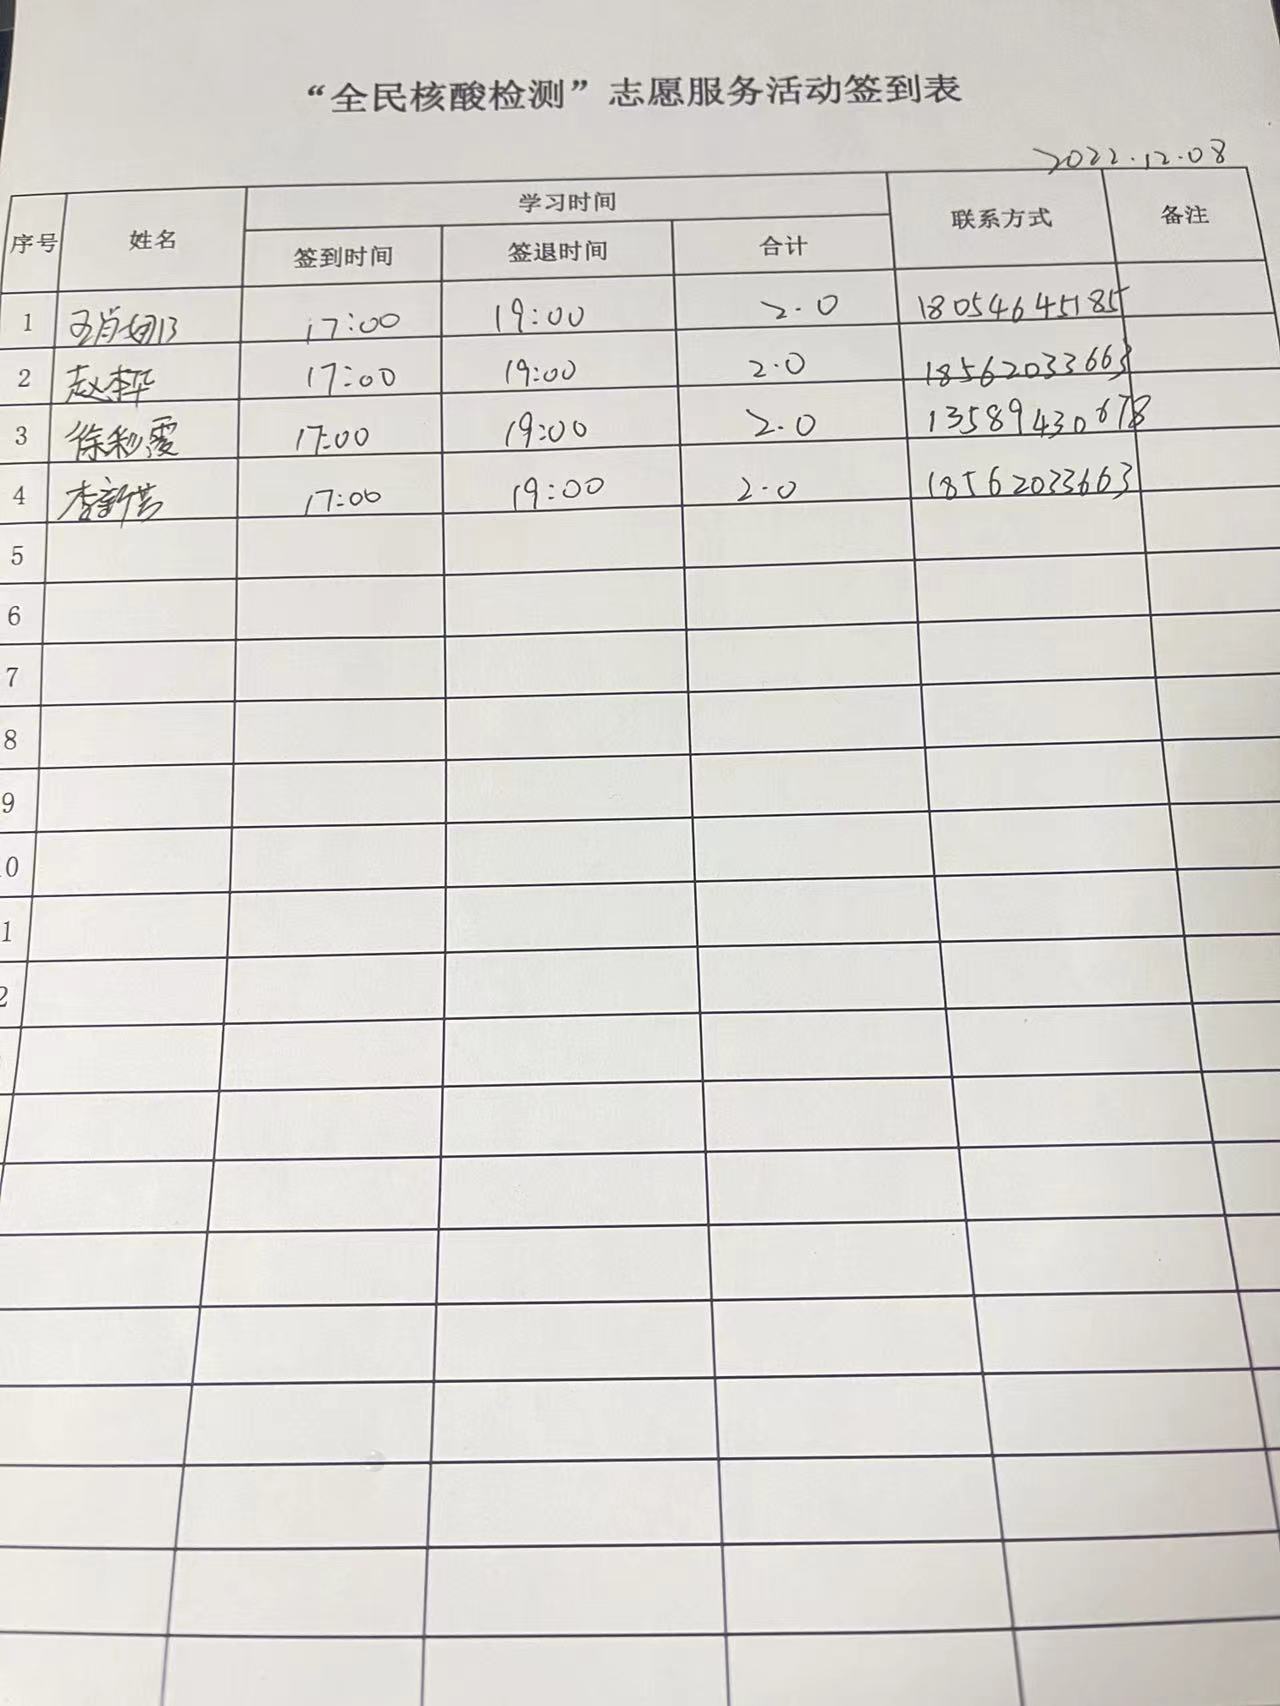 “全民核酸检测”志愿服务活动签到表
2022.12.08
序号 姓名 学习时间 联系方式 备注
签到时间 签退时间 合计
1 王肖娜 17:00 19:00 2.0 18054645185
2 赵本华 17:00 19:00 2.0 18562033663
3 徐秋霞 17:00 19:00 2.0 13589430678
4 李新芳 17:00 19:00 2.0 18562033663
5
6
7
8
9
0
1
2